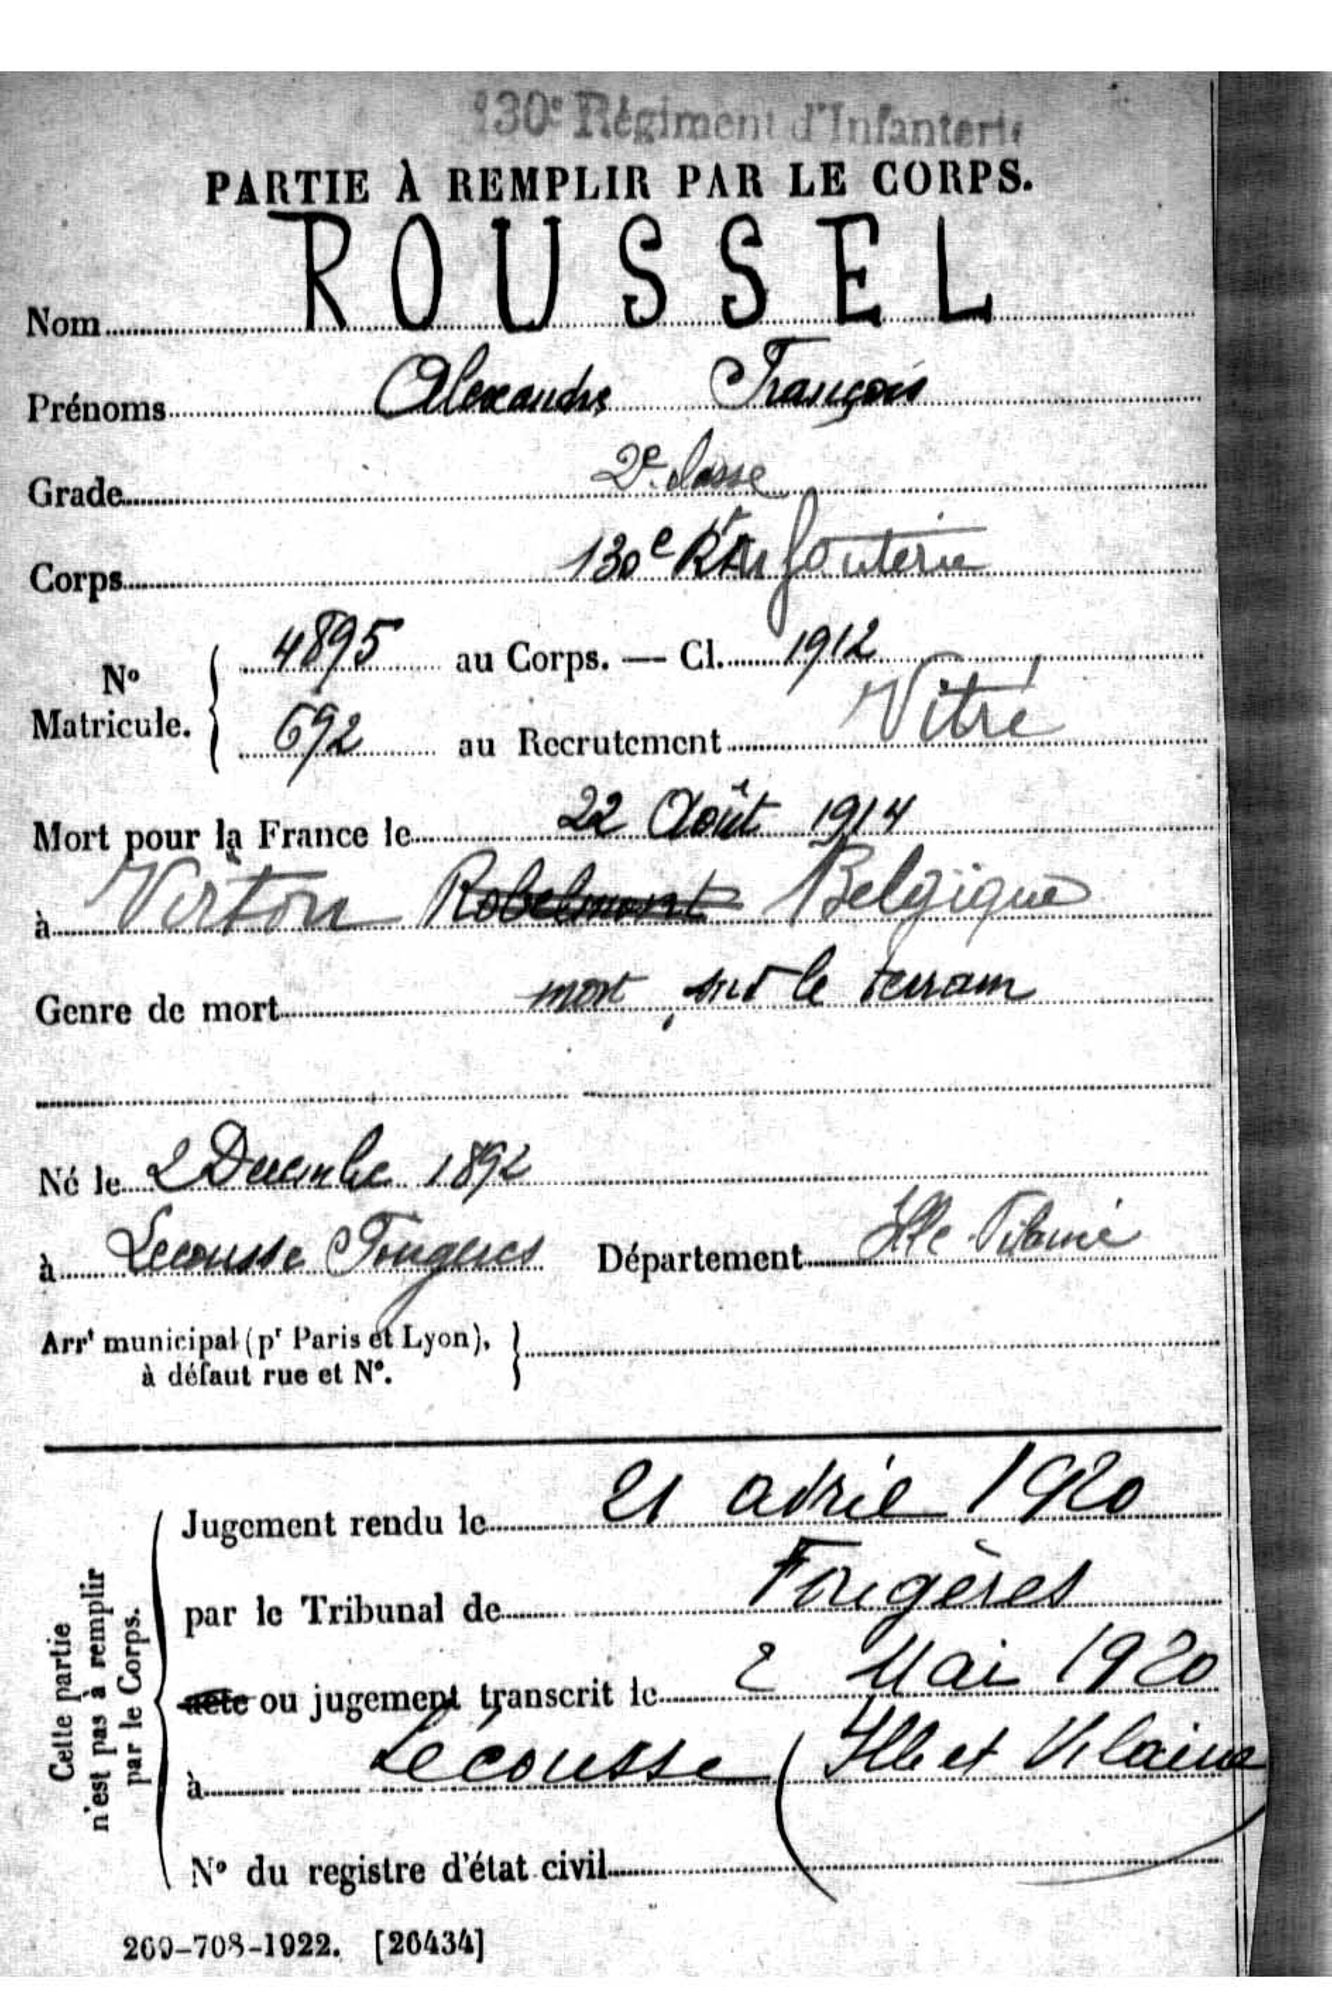 130e Régiment d'Infanterie
PARTIE À REMPLIR PAR LE CORPS.
Nom ROUSSEL
Prénoms Alexandre François
Grade 2e classe
Corps 130e Rt Infanterie
No Matricule. { 4895 au Corps. — Cl. 1912
692 au Recrutement Vitré
Mort pour la France le 22 Août 1914
à Virton Robelmont Belgique
Genre de mort mort sur le terrain
Né le 2 Decembre 1892
à Lecousse Fougeres Département Ille Vilaine
Arrt municipal (pr Paris et Lyon), }
à défaut rue et No.
Cette partie n'est pas à remplir par le Corps.
Jugement rendu le 21 avril 1920
par le Tribunal de Fougères
acte ou jugement transcrit le 2 Mai 1920
à Lécousse (Ille et Vilaine
No du registre d'état civil
269-708-1922. [26434]